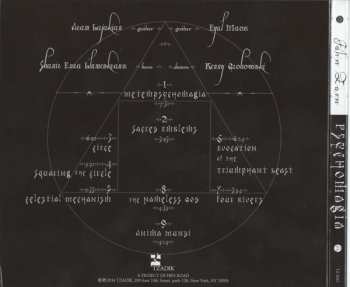 Aram Bajakian guitar
guitar Eyal Maoz
Shanir Ezra Blumenkranz bass
drums Kenny Grohowski
1
metapsychomagia
2
sacred emblems
3
circe
4
squaring the circle
5
celestial mechanism
6
evocation
of the
triumphant beast
7
four rivers
8
the nameless god
9
anima mundi
TZADIK
John Zorn
Psychomagia